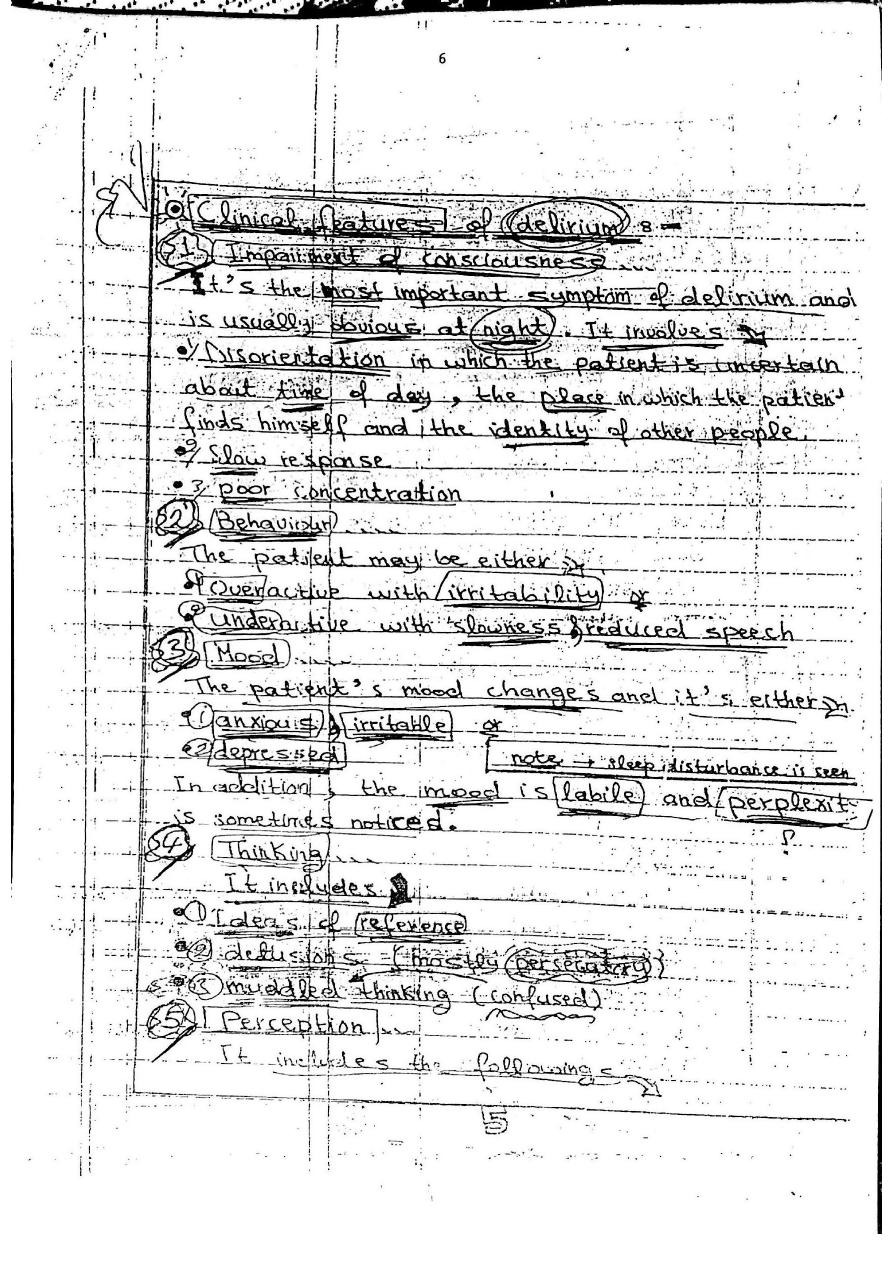 6
Clinical features of delirium :-
1 Impairment of consciousness ....
It's the most important symptom of delirium and
is usually obvious at night. It involves
1/ Disorientation in which the patient is uncertain
about time of day, the place in which the patient
finds himself and the identity of other people.
2/ Slow response
3/ poor concentration
2 Behaviour ....
The patient may be either
1 Overactive with irritability or
2 underactive with slowness & reduced speech
3 Mood ....
The patient's mood changes and it's either
1 anxious & irritable or
2 depressed
note → sleep disturbance is seen
In addition, the mood is labile and perplexit
is sometimes noticed.
?
4 Thinking ...
It includes
1 Ideas of reference
2 delusions (mostly persecutory)
3 muddled thinking (confused)
5 Perception ...
It includes the followings
5